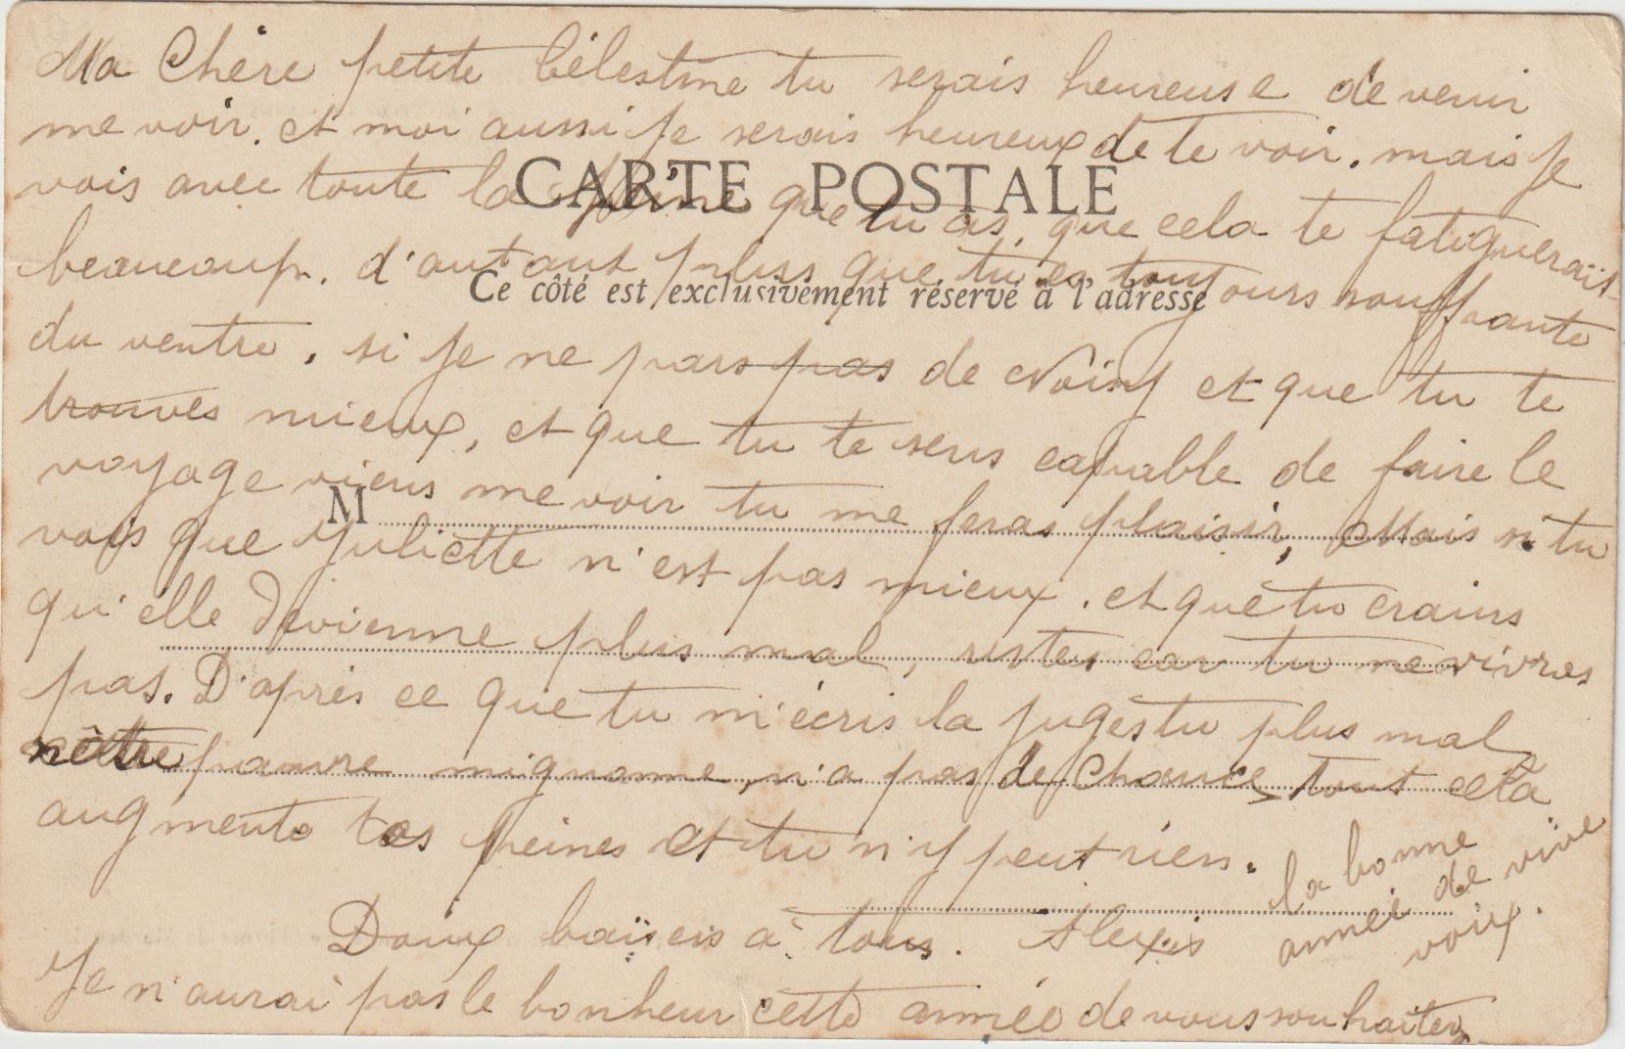 Ma Chère petite Célestine tu serais heureuse de venir
me voir. et moi aussi je serais heureux de te voir. mais je
CARTE POSTALE
vois avec toute la peine que tu as, que cela te fatiguerait
beaucoup. d'autant plus que tu es toujours souffrante
Ce côté est exclusivement réservé à l'adresse
du ventre. si je ne pars pas de Noisy et que tu te
trouves mieux, et que tu te sens capable de faire le
voyage viens me voir tu me feras plaisir, Mais si tu
M
vois que Juliette n'est pas mieux. et que tu crains
qu'elle devienne plus mal, restes car tu ne vivres
pas. D'après ce que tu m'écris la juges tu plus mal
nôtre pauvre mignonne, n'a pas de chance, tout cela
augmente tes peines et tu n'y peut rien.
Doux baisers à tous. Alexis
Je n'aurai pas le bonheur cette année de vous souhaiter
la bonne
année de vive
voix.